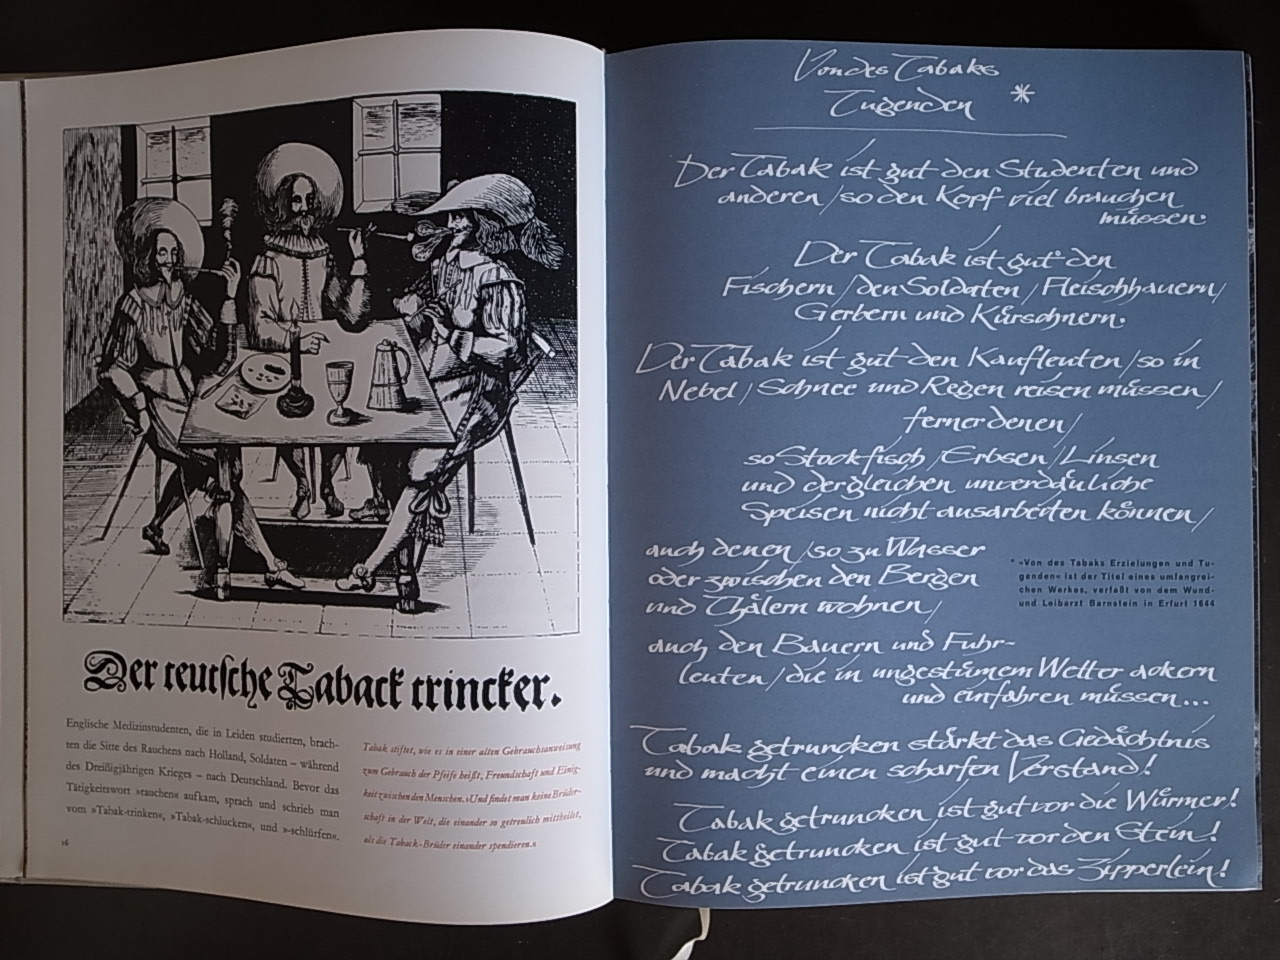 Der teutsche Taback trincker.
Englische Medizinstudenten, die in Leiden studierten, brach-
ten die Sitte des Rauchens nach Holland, Soldaten – während
des Dreißigjährigen Krieges – nach Deutschland. Bevor das
Tätigkeitswort »rauchen« aufkam, sprach und schrieb man
vom »Tabak-trinken«, »Tabak-schlucken«, und »-schlürfen«.
16
Tabak stiftet, wie es in einer alten Gebrauchsanweisung
zum Gebrauch der Pfeife heißt, Freundschaft und Einig-
keit zwischen den Menschen. »Und findet man keine Brüder-
schaft in der Welt, die einander so getreulich mittheilet,
als die Taback-Brüder einander spendieren.«
Von des Tabaks
Tugenden *
Der Tabak ist gut den Studenten und
anderen / so den Kopf viel brauchen
müssen.
Der Tabak ist gut den
Fischern / den Soldaten / Fleischhauern /
Gerbern und Kürschnern.
Der Tabak ist gut den Kaufleuten / so in
Nebel / Schnee und Regen reisen müssen /
ferner denen /
so Stockfisch / Erbsen / Linsen
und dergleichen unverdäuliche
Speisen nicht ausarbeiten können /
auch denen / so zu Wasser
oder zwischen den Bergen
und Thälern wohnen /
auch den Bauern und Fuhr-
leuten / die in ungestümem Wetter ackern
und einfahren müssen...
Tabak getruncken stärkt das Gedächtnis
und macht einen scharfen Verstand!
Tabak getruncken ist gut vor die Würmer!
Tabak getruncken ist gut vor den Stein!
Tabak getruncken ist gut vor das Zipperlein!
* »Von des Tabaks Erzielungen und Tu-
genden« ist der Titel eines umfangrei-
chen Werkes, verfaßt von dem Wund-
und Leibarzt Barnstein in Erfurt 1644